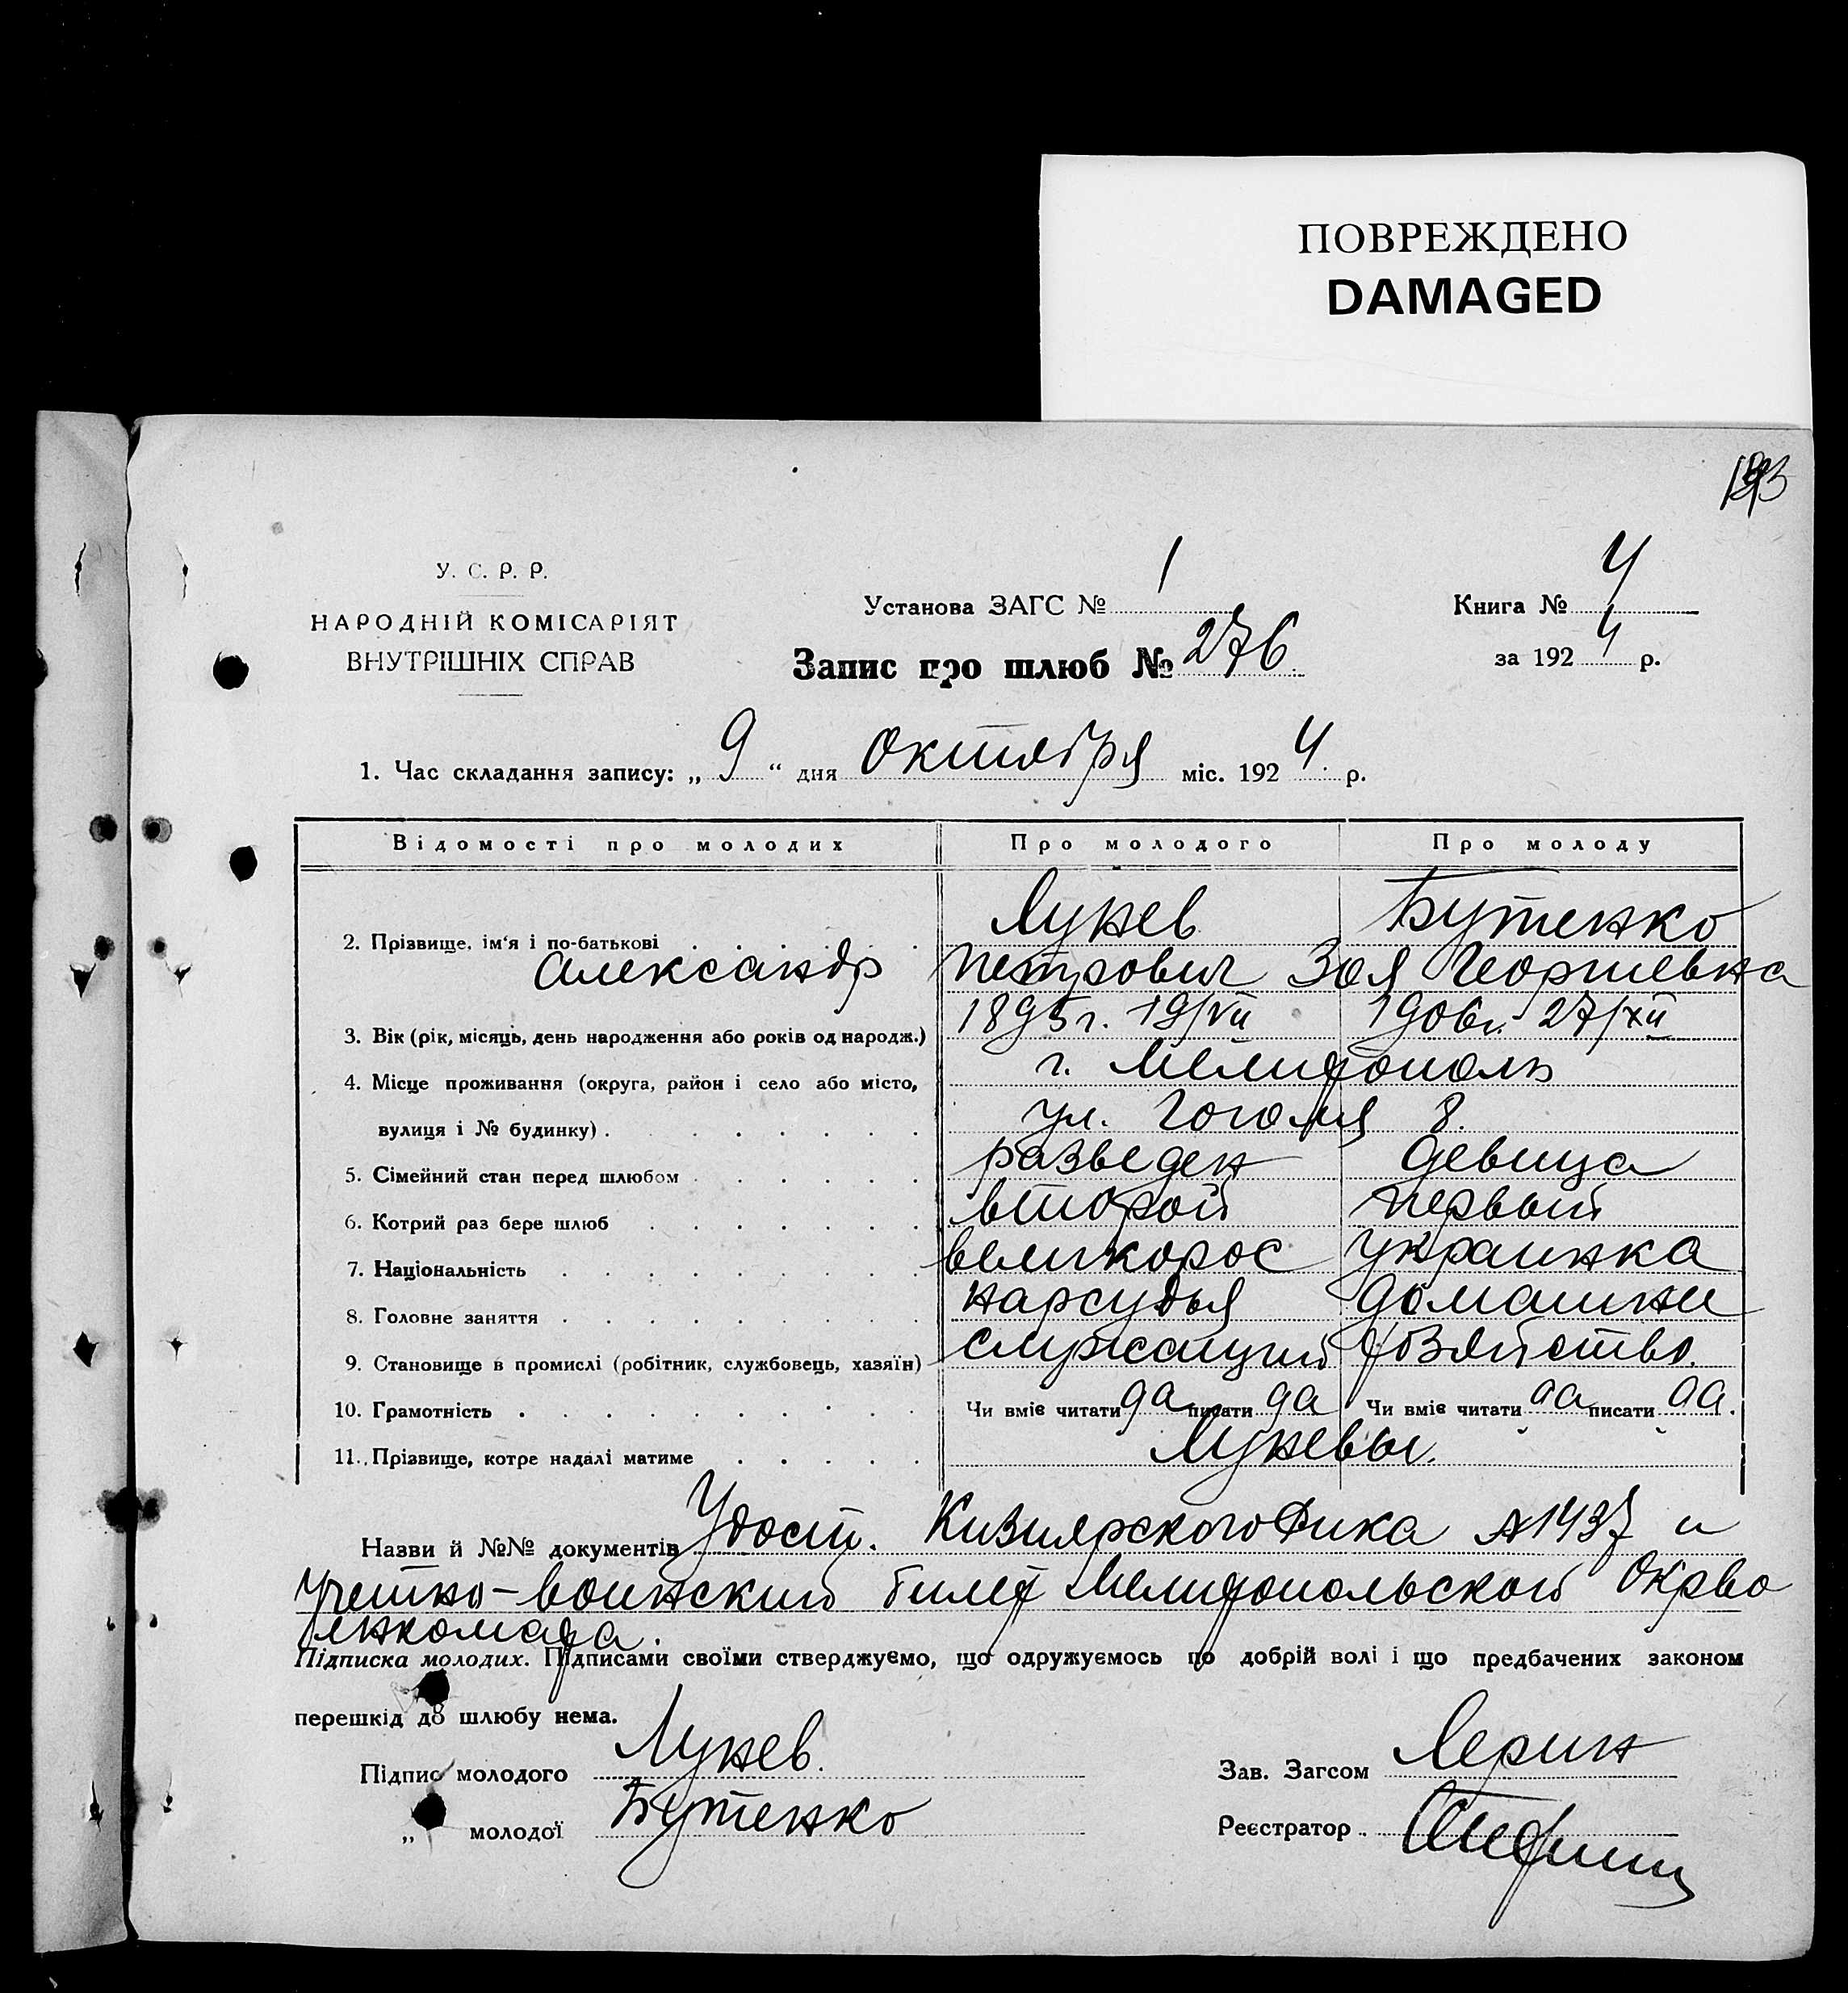 ПОВРЕЖДЕНО
DAMAGED
У. С. Р. Р.
НАРОДНІЙ КОМІСАРІЯТ
ВНУТРІШНІХ СПРАВ
Установа ЗАГС № 1
Книга № 4
Запис про шлюб № 276
за 1924 р.
1. Час складання запису: „9“ дня Октября міс. 1924. р.
Відомості про молодих Про молодого Про молоду
Лунев Бутенко
2. Прізвище, ім'я і по-батькові
Александр Петрович Зоя Георгиевна
3. Вік (рік, місяць, день народження або років од народж.) 1895 г. 19/VII 1906 г. 27/XII
4. Місце проживання (округа, район і село або місто, г. Мелитополь
вулиця і № будинку). ул. Гоголя 8.
5. Сімейний стан перед шлюбом разведен девица
6. Котрий раз бере шлюб второй первый
7. Національність великорос украинка
8. Головне заняття нарсудья домашнее
9. Становище в промислі (робітник, службовець, хазяїн) служащий хозяйство.
10. Грамотність Чи вміє читати да писати да Чи вміє читати да писати да.
11. Прізвище, котре надалі матиме Луневы.
Назви й №№ документів Удост. Кизиярского Рика № 1437 и
учетно-воинский билет Мелитопольского Окрво
енкомата.
Підписка молодих. Підписами своїми стверджуємо, що одружуємось по добрій волі і що предбачених законом
перешкід до шлюбу нема.
Підпис молодого Лунев.
Зав. Загсом
„ молодої Бутенко
Реєстратор